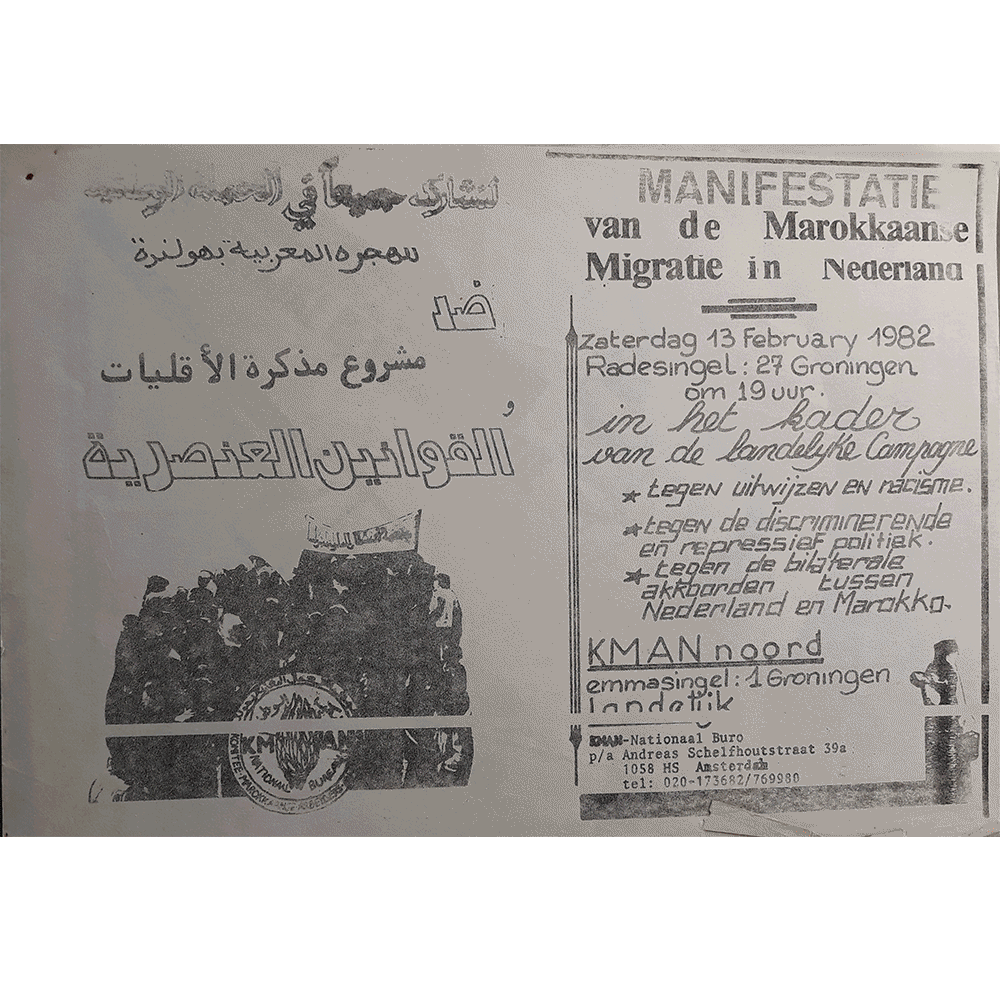 لنشارك جميعاً في الحملة الوطنية
للهجرة المغربية بهولندة
ضد
مشروع مذكرة الأقليات
و
القوانين العنصرية
KMAN
NATIONAAL BUREAU
KOMITEE MAROKKAANSE ARBEIDERS
MANIFESTATIE
van de Marokkaanse
Migratie in Nederland
zaterdag 13 February 1982
Radesingel: 27 Groningen
om 19 uur.
in het kader
van de landelyke Campagne
* tegen uitwijzen en racisme.
* tegen de discriminerende
en repressief politiek.
* tegen de bilaterale
akkoorden tussen
Nederland en Marokko.
KMAN noord
emmasingel: 1 Groningen
landelijk
KMAN-Nationaal Buro
p/a Andreas Schelfhoutstraat 39a
1058 HS Amsterdam
tel: 020-173682/769980